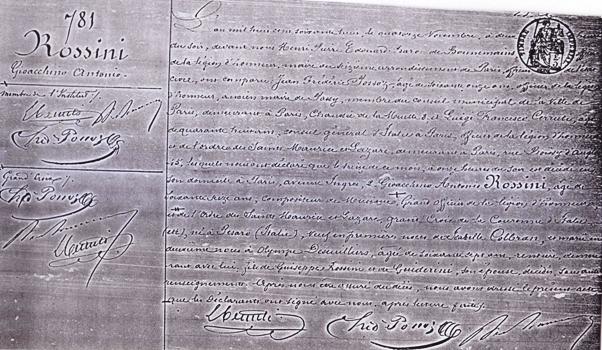 781
Rossini
Gioacchino Antonio.
Membre de l'Institut
Grand Croix
L'an mil huit cent soixante huit, le quatorze Novembre, à deux
du soir, devant nous Henri Edouard Baron de Bonnemains
de la légion d'honneur, maire du seizième arrondissement de Paris, officier
civil, ont comparu Jean Frédéric Possoz, âgé de soixante onze ans, officier de la légion
d'honneur, ancien maire de Passy, membre du conseil municipal de la Ville de
Paris, demeurant à Paris, Chaussée de la Muette 8, et Luigi Francesco Cerruti, âgé
de quarante huit ans, consul général d'Italie à Paris, officier de la légion d'honneur
et de l'ordre de Saint Maurice et Lazare, demeurant à Paris, rue
lesquels nous ont déclaré que le treize de ce mois, à onze heures du soir est décédé en
son domicile à Paris, avenue Ingres, 2, Gioacchino Antonio Rossini, âgé de
soixante seize ans, compositeur de Musique, Grand officier de la légion d'honneur
et de l'Ordre des Saints Maurice et Lazare, grand Croix de la Couronne d'Italie
né à Pesaro (Italie), veuf en premières noces de Isabelle Colbran, et marié en
deuxième noces à Olympe Descuilliers, âgée de soixante sept ans, rentière, demeu-
rant avec lui, fils de Giuseppe Rossini et de Guidarini, son épouse, décédés, sans autres
renseignements. Après nous être assuré du décès, nous avons dressé le présent acte
que les Déclarants ont signé avec nous, après lecture faite.